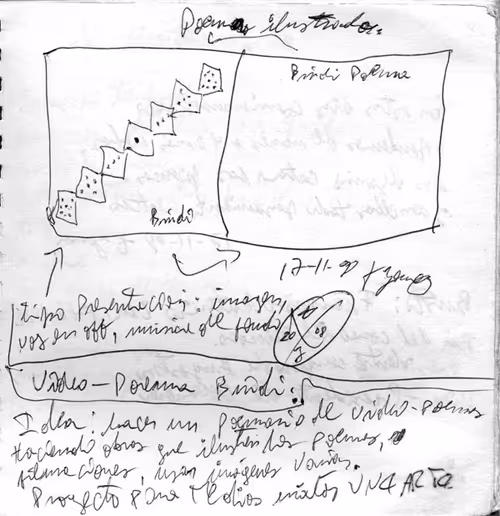 Poemas ilustrados.
Bindi Poema
Bindi
17-11-09
tipo presentación: imagen,
voz en off, música de fondo
20 09
Video-Poema Bindi:
Idea: hacer un Poemario de video-poemas
Haciendo obras que ilustren los poemas,
filmaciones, usar imágenes varias.
Proyecto para Medios mixtos UNEARTE